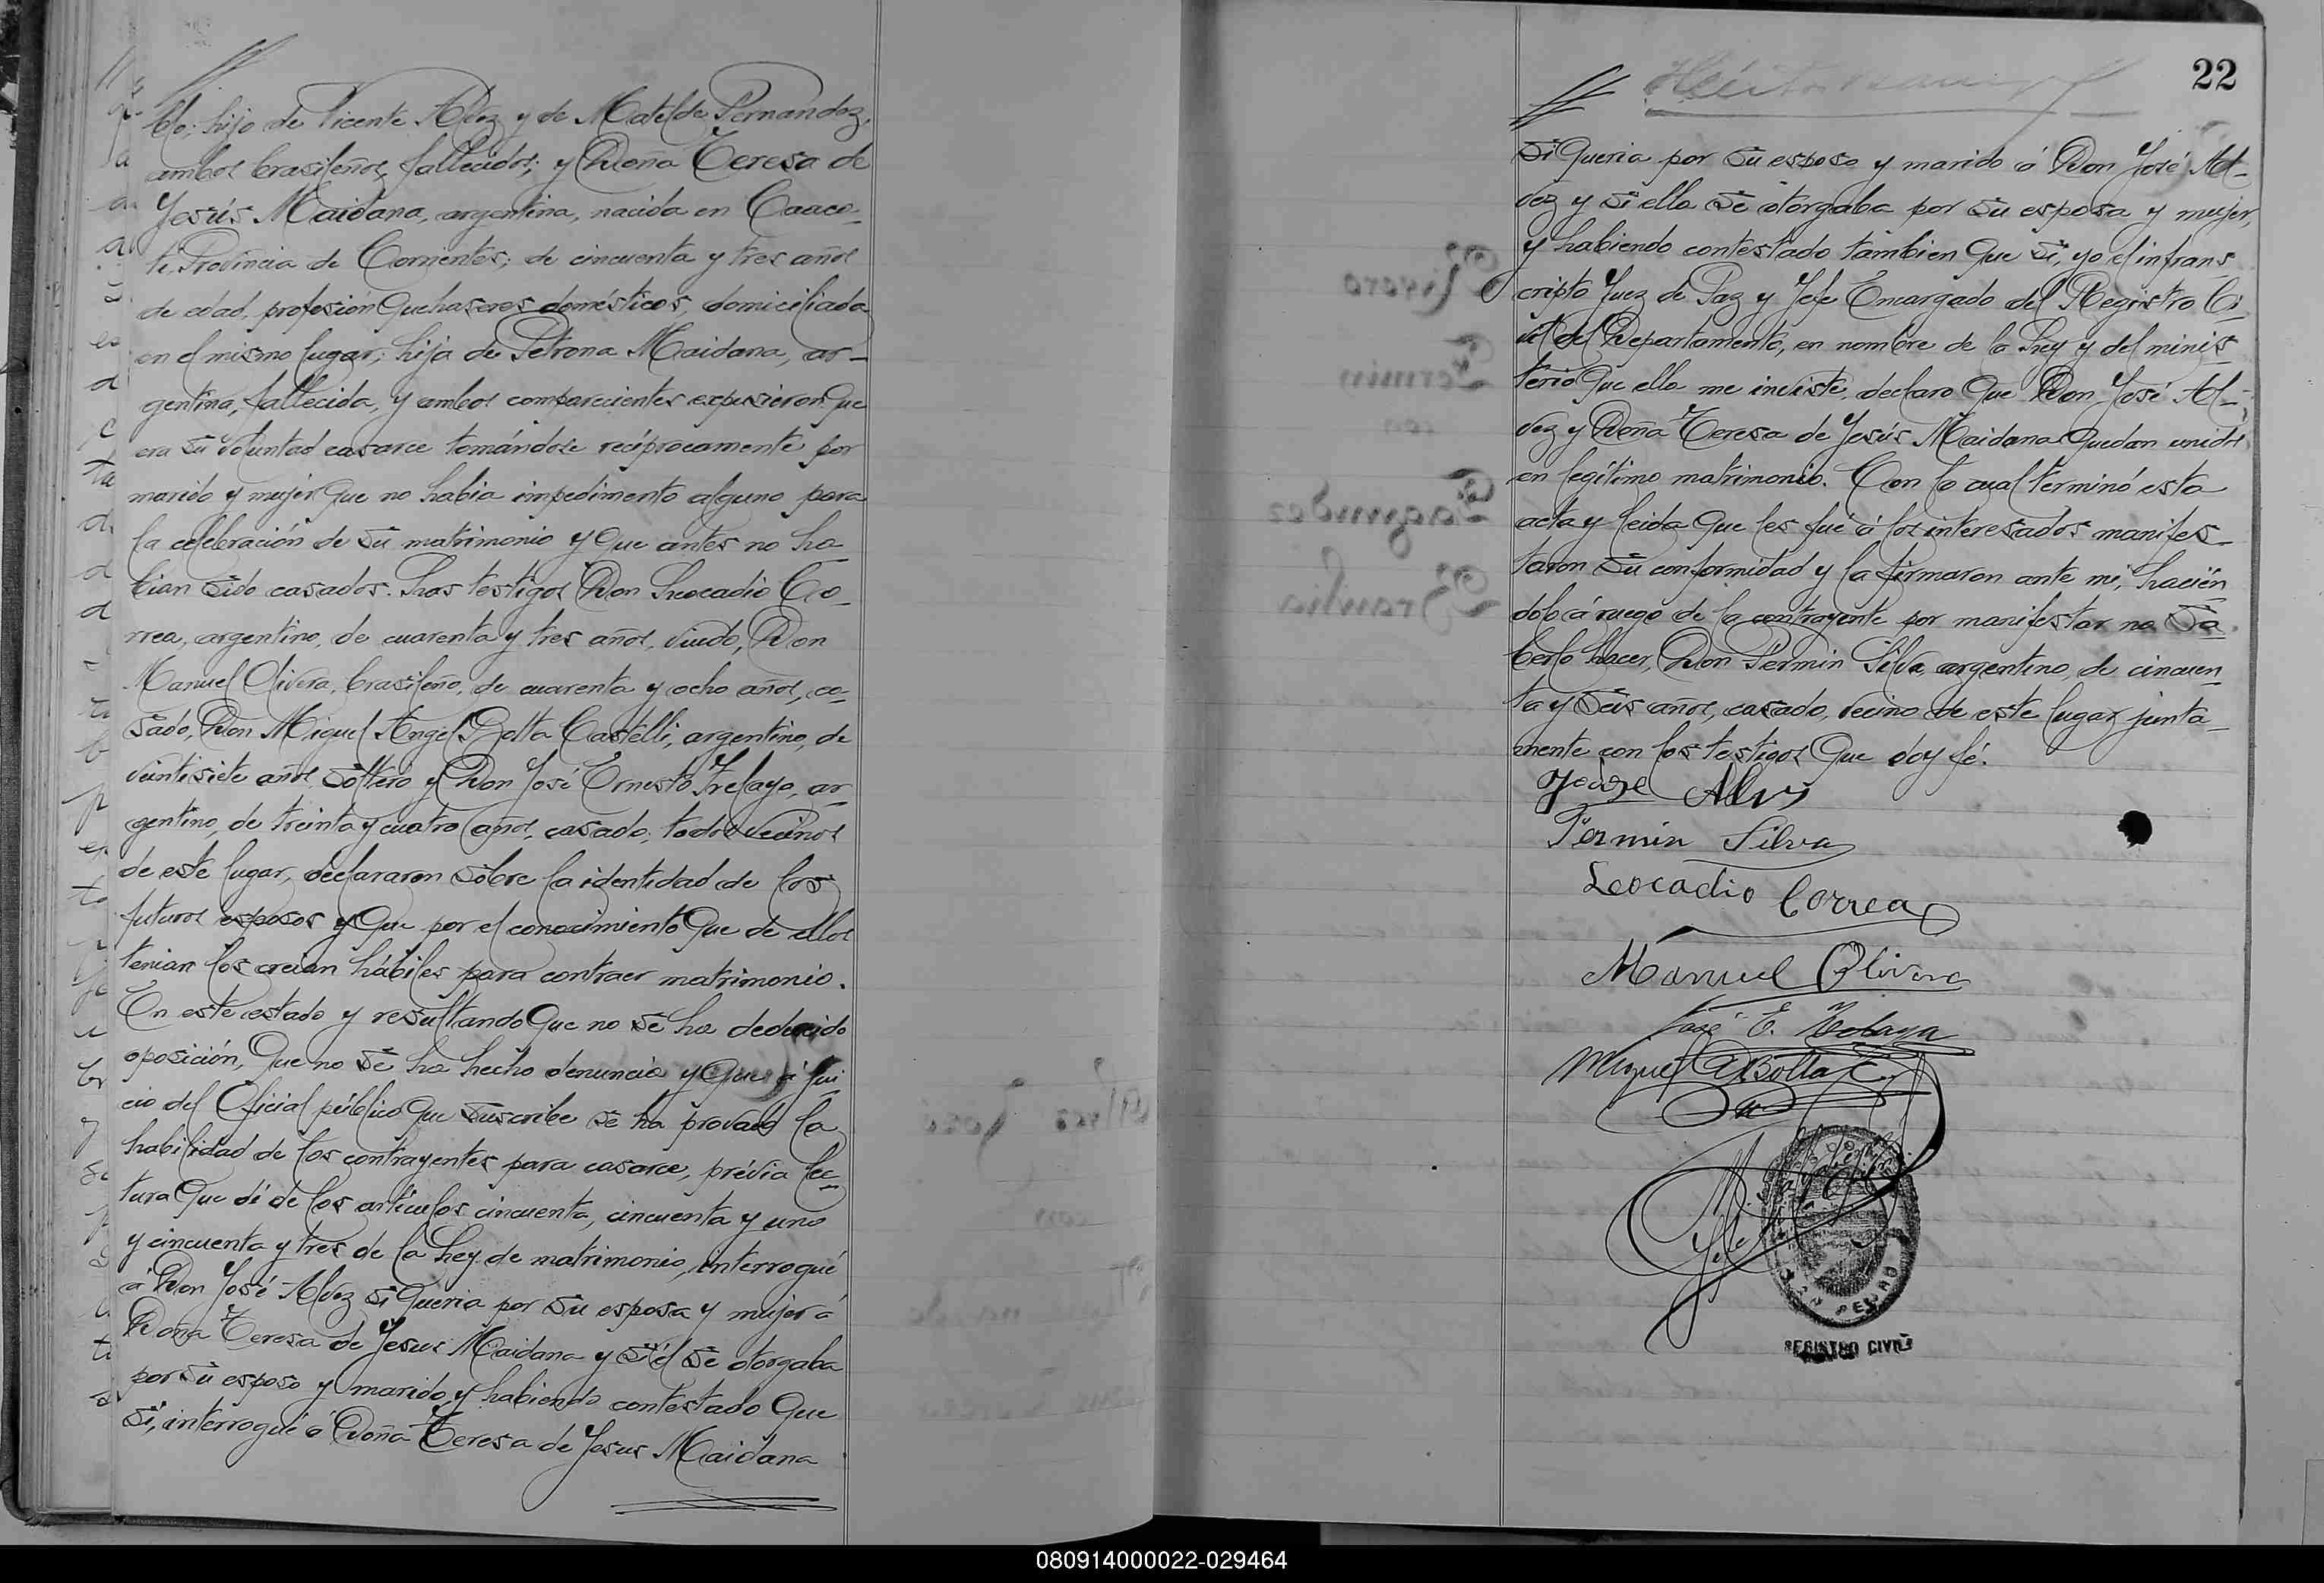 blo; hijo de Vicente Alvez y de Matilde Fernandez,
ambos brasileños, fallecidos; y Doña Teresa de
Jesús Maidana, argentina, nacida en Caaca-
ti, Provincia de Corrientes; de cincuenta y tres años
de edad, profesión quehaseres domésticos, domiciliada
en el mismo lugar; hija de Petrona Maidana, ar-
gentina, fallecida, y ambos comparecientes expusieron que
era su voluntad casarce tomándose recíprocamente por
marido y mujer que no habia impedimento alguno para
la celebración de su matrimonio y que antes no ha-
bian sido casados. Los testigos Don Leocadio Co-
rrea, argentino, de cuarenta y tres años, viudo, Don
Manuel Olivera, brasileño, de cuarenta y ocho años, ca-
sado, Don Miguel Angel Botta Castelli, argentino, de
veintisiete años, soltero y Don José Ernesto Trelaya, ar-
gentino, de treinta y cuatro años, casado; todos vecinos
de este lugar, declararon sobre la identidad de los
futuros esposos y que por el conocimiento que de ellos
tenian los creian hábiles para contraer matrimonio.
En este estado y resultando que no se ha deducido
oposición, que no se ha hecho denuncia y que á jui
cio del Oficial público que suscribe se ha provado la
habilidad de los contrayentes para casarce, prévia lec-
tura que dí de los artículos cincuenta, cincuenta y uno
y cincuenta y tres de la Ley de matrimonio, interrogué
á Don José Alvez si queria por su esposa y mujer á
Doña Teresa de Jesus Maidana y si él se otorgaba
por su esposo y marido, y habiendo contestado que
si, interrogué á Doña Teresa de Jesus Maidana
22
si queria por su esposo y marido á Don José Al-
vez y si ella se otorgaba por su esposa y mujer,
y habiendo contestado tambien que si, yo el infrans
cripto Juez de Paz y Jefe Encargado del Registro Ci
vil del Departamento, en nombre de la Ley y del minis
terio que ella me inviste, declaro que Don José Al-
vez y Doña Teresa de Jesús Maidana quedan unidos
en legítimo matrimonio. Con lo cual terminó esta
acta y leida que les fué á los interesados manifes-
taron su conformidad y la firmaron ante mi, hacién
dolo á ruego de la contrayente por manifestar no sa
berlo hacer, Don Fermin Silva, argentino, de cincuen
ta y seis años, casado, vecino de este lugar, junta-
mente con los testigos que doy fé.
Fermin Silva
Leocadio Correa
Manuel Olivera
José E.
Miguel A Botta C
Jefe
SAN PEDRO
REGISTRO CIVIL
080914000022-029464